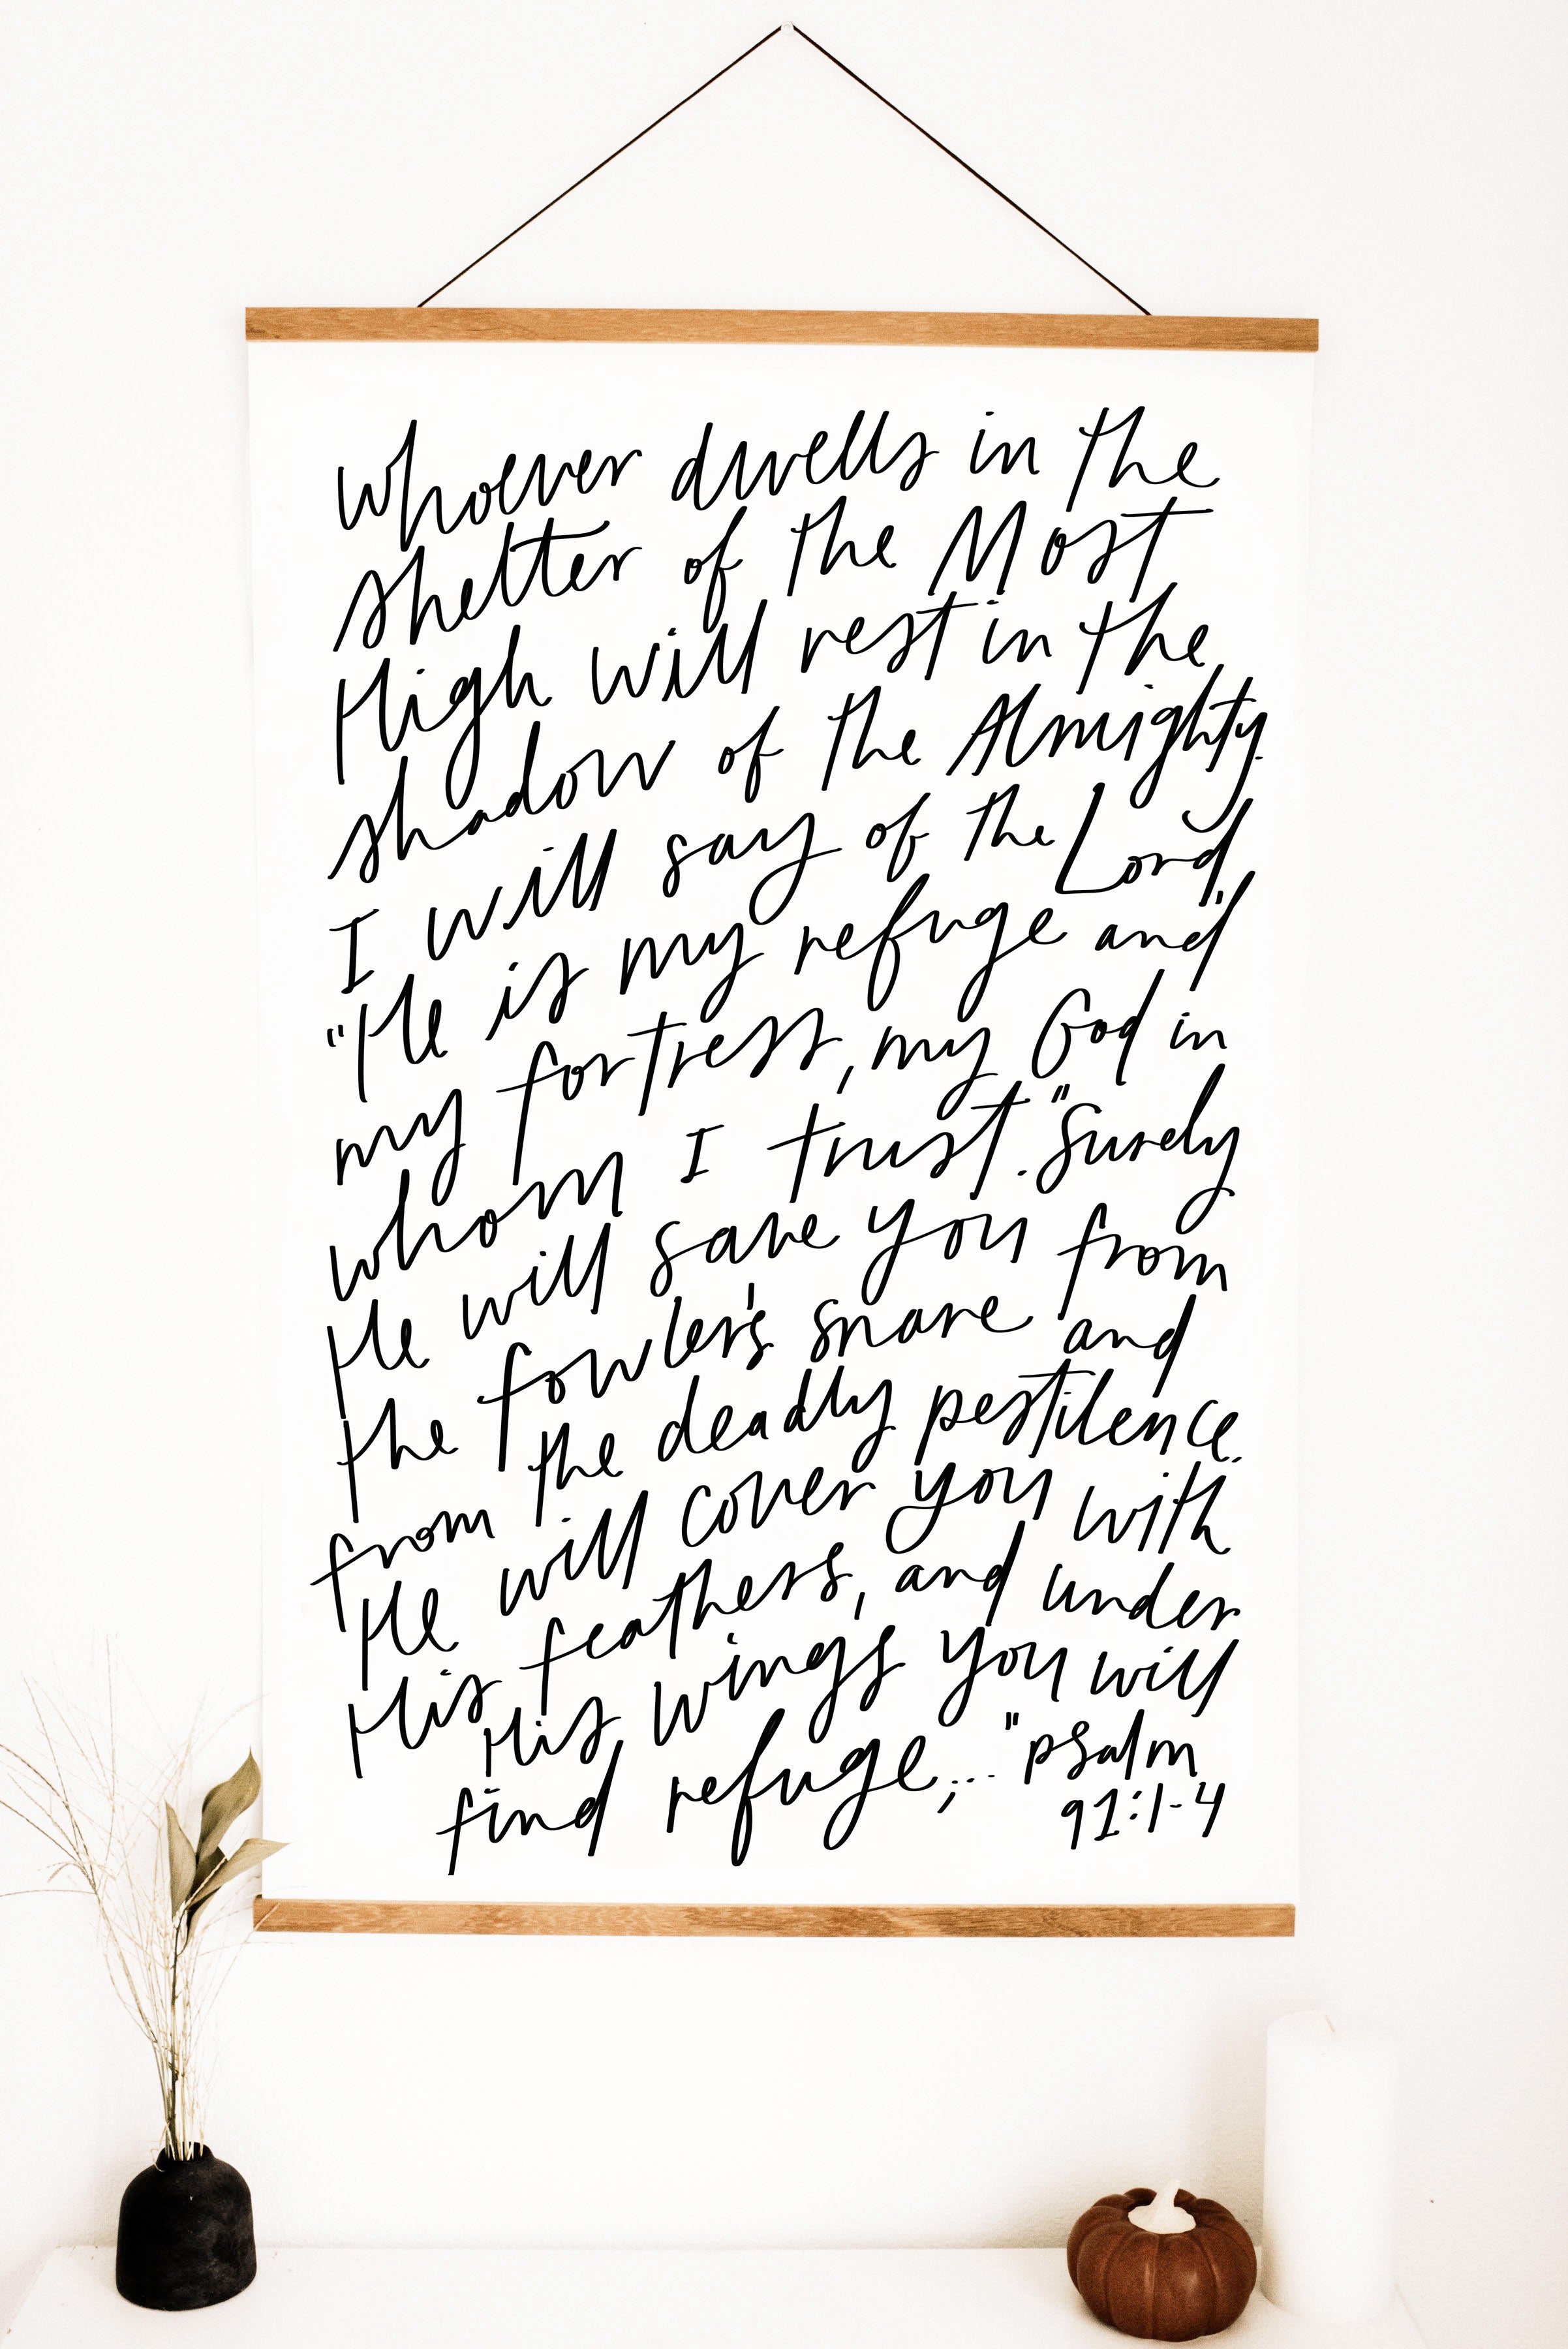 whoever dwells in the
shelter of the Most
High will rest in the
shadow of the Almighty.
I will say of the Lord,
"He is my refuge and
my fortress, my God in
whom I trust." Surely
He will save you from
the fowler's snare and
from the deadly pestilence.
He will cover you with
His feathers, and under
His wings you will
find refuge;..." psalm
91:1-4